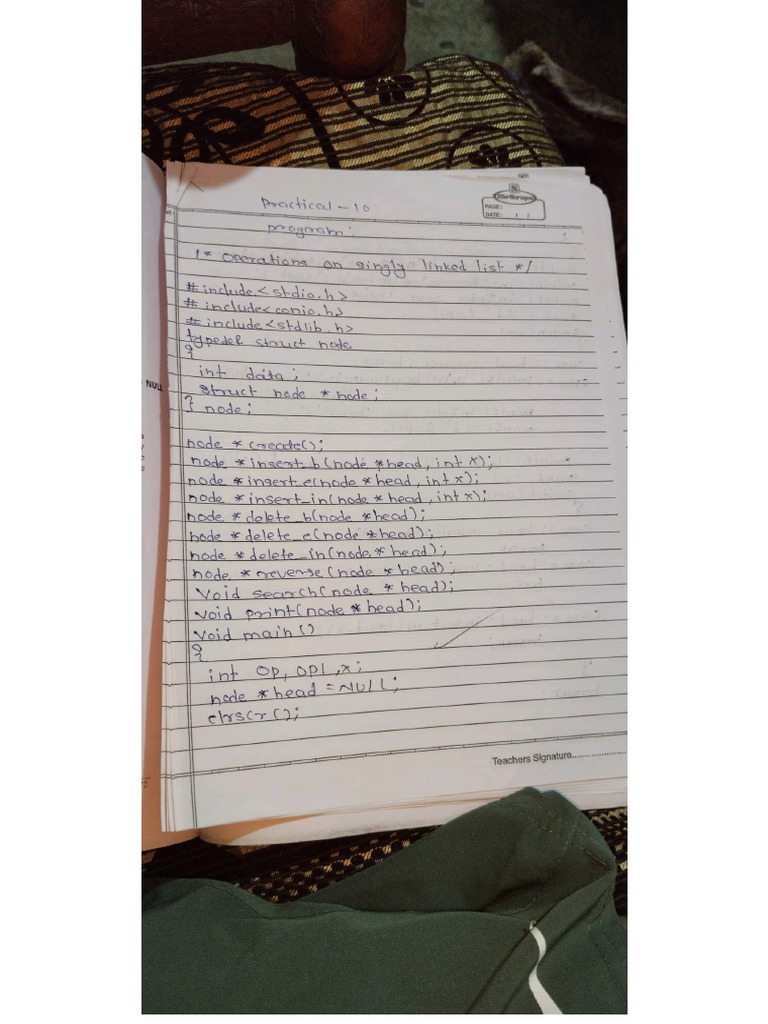 Practical - 10
PAGE :
DATE : / /
program:
/* operations on singly linked list */
#include<stdio.h>
#include<conio.h>
#include<stdlib.h>
typedef struct node
{
int data;
NULL
struct node * node;
} node;
node * create();
node * insert_b(node *head, int x);
node * insert_e(node *head, int x);
node * insert_in(node *head, int x);
node * delete_b(node *head);
node * delete_e(node *head);
node * delete_in(node * head);
node * reverse(node *head);
void search(node * head);
void print(node *head);
void main()
{
int op, op1, x;
node *head = NULL;
clrscr();
Teachers Signature